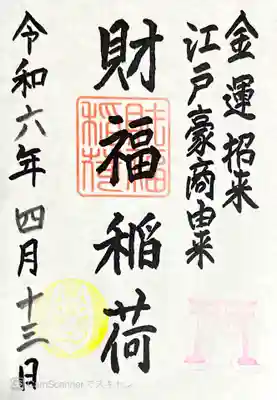 金運招来
江戸豪商由来
財福稲荷
財福稲荷
令和六年 四月十三日
CamScannerでスキャン